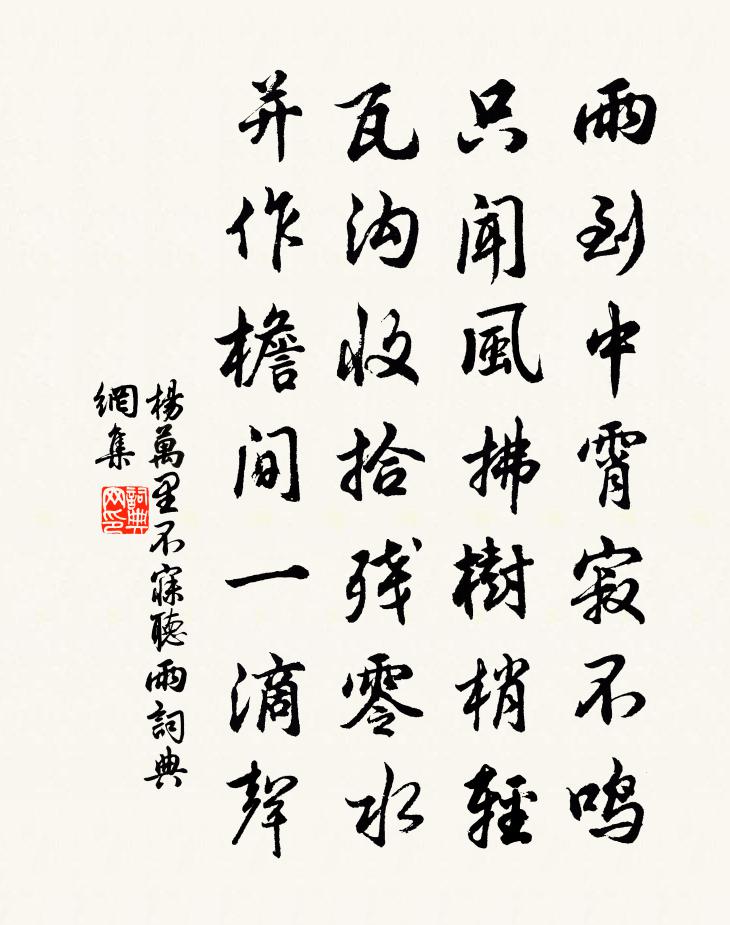 雨到中霄寂不鸣
只闻風拂樹梢輕
瓦沟收拾残零水
并作檐间一滴聲
楊萬里不寐聽雨詞典
網集
詞典
网印